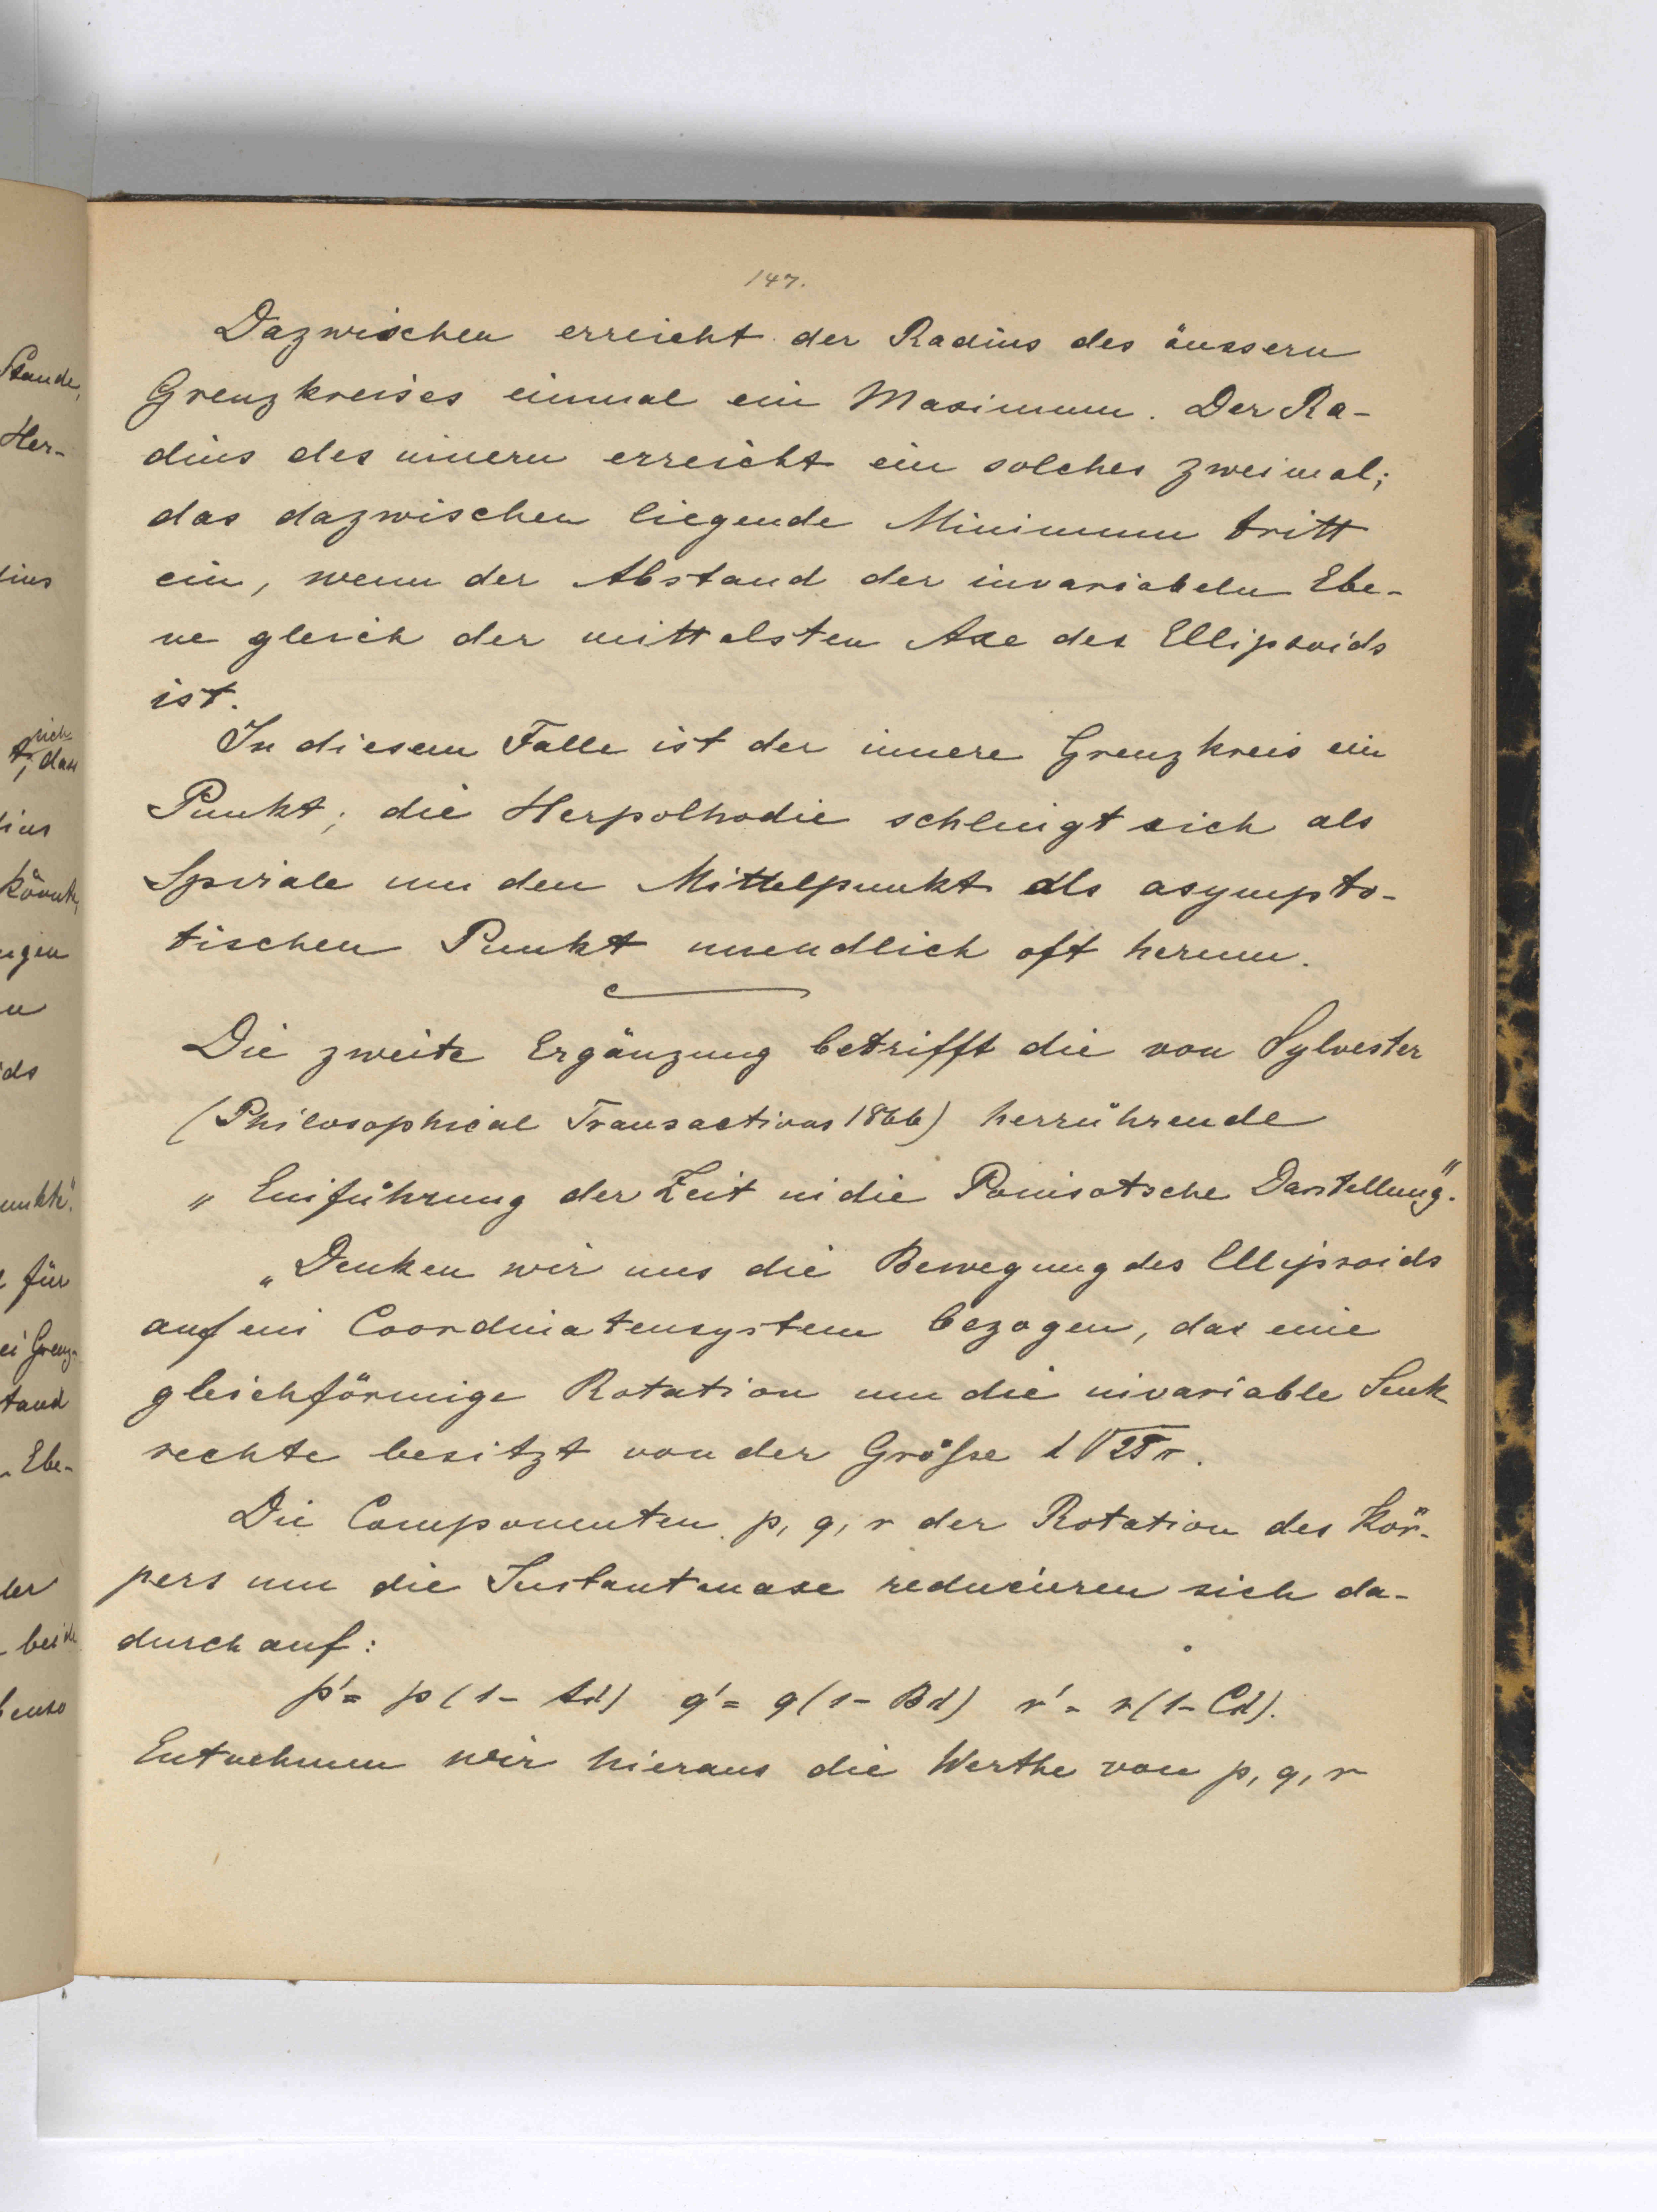 147.
Dazwischen erreicht der Radius des äussern
Grenzkreises einmal ein Maximum. Der Ra-
dius des innern erreicht ein solches zweimal;
das dazwischen liegende Minimum tritt
ein, wenn der Abstand der invariabeln Ebe-
ne gleich der mittelsten Axe des Ellipsoids
ist.
In diesem Falle ist der innere Grenzkreis ein
Punkt; die Herpolhodie schlingt sich als
Spirale um den Mittelpunkt als asympto-
tischen Punkt unendlich oft herum.
Die zweite Ergänzung betrifft die von Sylvester
(Philosophical Transactions 1866) herrührende
„Einführung der Zeit in die Poinsotsche Darstellung".
„Denken wir uns die Bewegung des Ellipsoids
auf ein Coordinatensystem bezogen, das eine
gleichförmige Rotation um die invariable Senk
rechte besitzt von der Größe
Die Componenten p, q, r der Rotation des Kör-
pers um die Instantanaxe reducieren sich da-
durch auf:
p' = p(1 - Ad) q' = q(1 - Bd) r' = r(1 - Cd).
Entnehmen wir hieraus die Werthe von p, q, r
Stande,
Her-
dius
sich
dius
könnte,
ds
für
Grenz-
tand
Ebe-